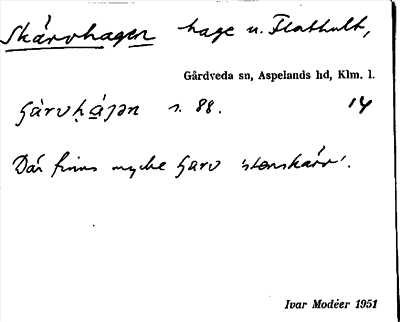 Skärvhagen hage u. Flathult,
Gårdveda sn, Aspelands hd, Klm. l.
s. 88. 14
Där finns mycke ɧarv 'stenskärv'.
Ivar Modéer 1951